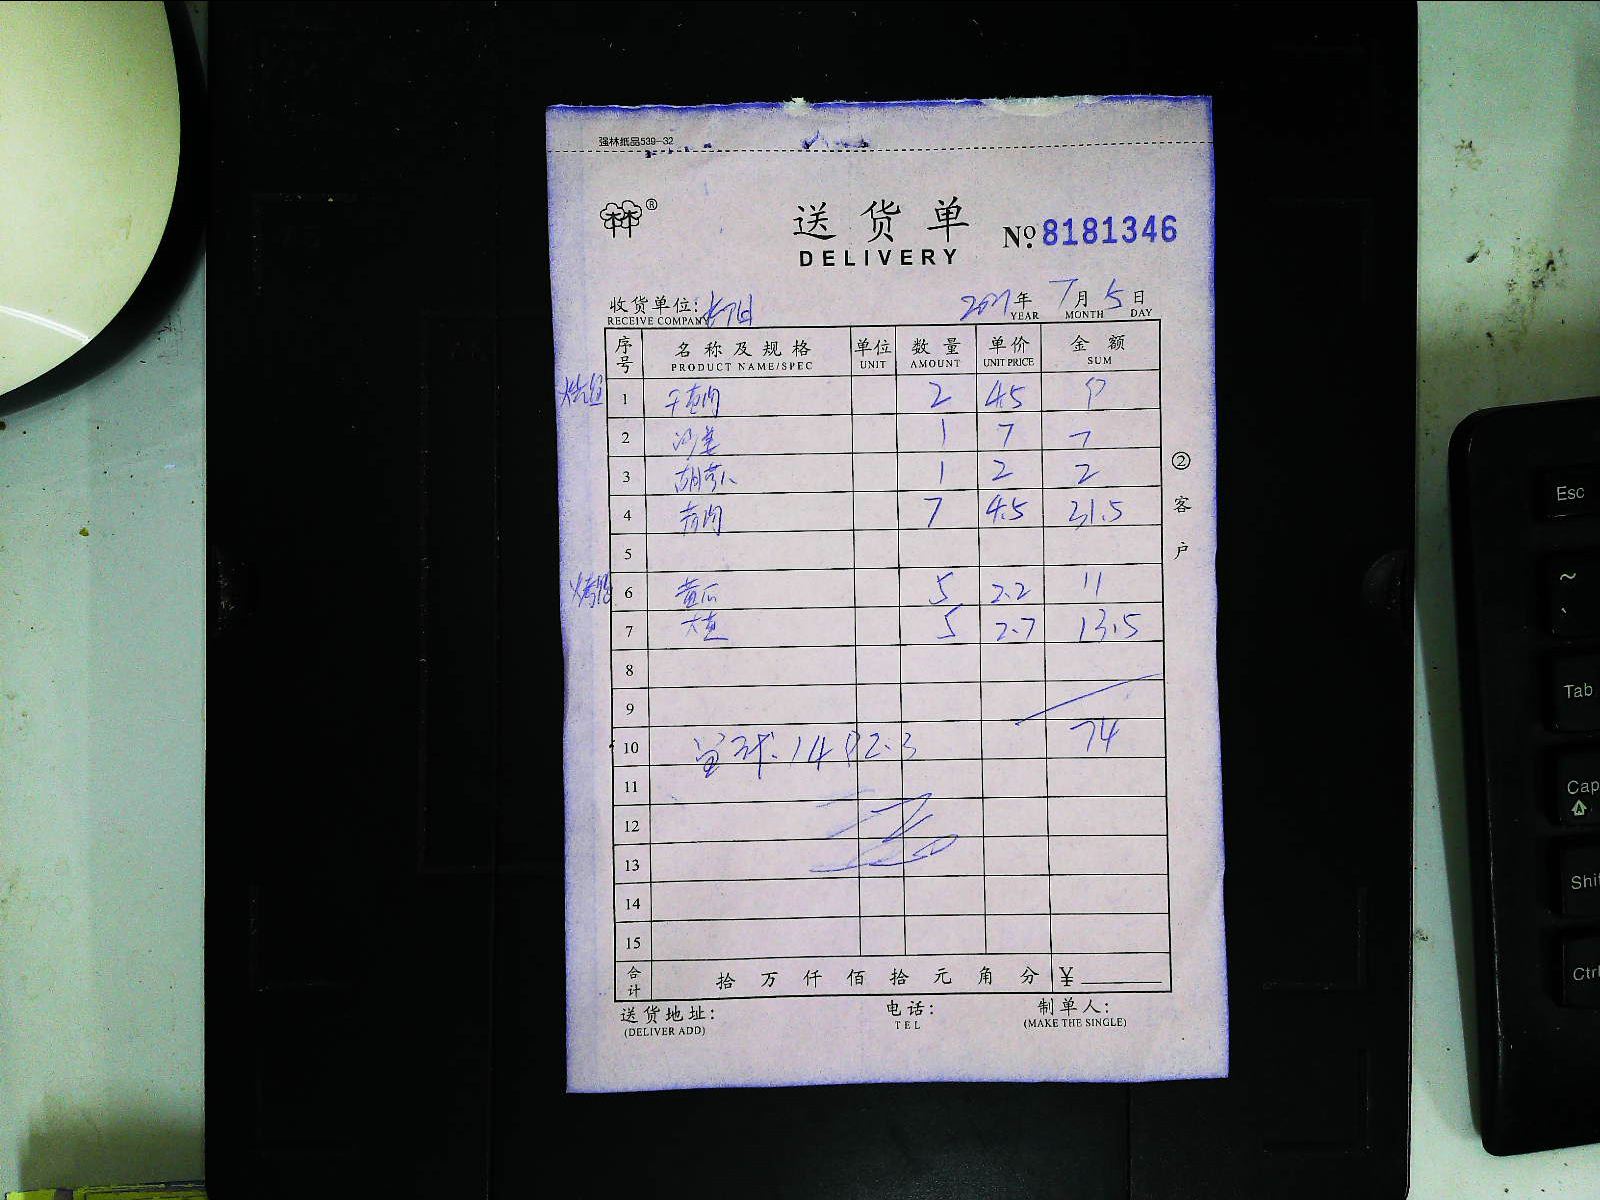 强林纸品539-32
®
送货单
DELIVERY
No. 8181346
收货单位:
RECEIVE COMPANY
2021年 7月 5日
YEAR MONTH DAY
序号 名称及规格 单位 数量 单价 金额
PRODUCT NAME/SPEC UNIT AMOUNT UNIT PRICE SUM
1 2 4.5 9
2 沙姜 1 7 7
3 1 2 2
4 7 4.5 31.5
5
6 黄瓜 5 2.2 11
7 5 2.7 13.5
8
9
10 74
11
12
13
14
15
合计 拾 万 仟 佰 拾 元 角 分 ¥
②客户
送货地址: 电话: 制单人:
(DELIVER ADD) TEL (MAKE THE SINGLE)
Esc
~
`
Tab
Cap
Shif
Ctrl